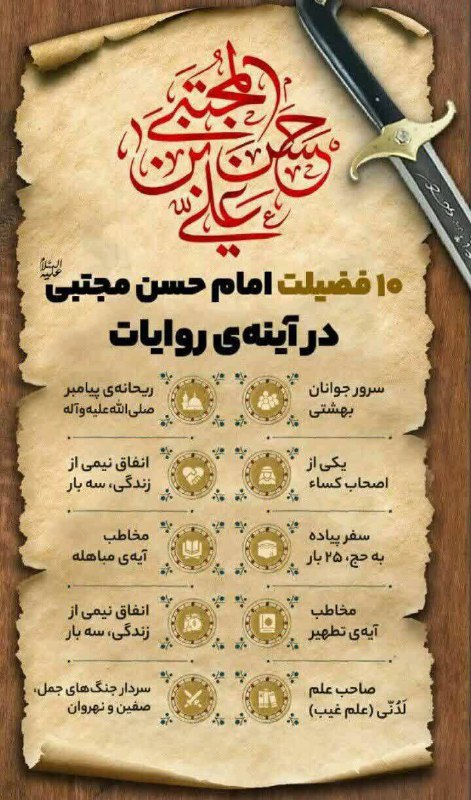 حسن بن علی المجتبی
۱۰ فضیلت امام حسن مجتبی علیه‌السلام
در آینه‌ی روایات
سرور جوانان
بهشتی
ریحانه‌ی پیامبر
صلی‌الله‌علیه‌وآله
یکی از
اصحاب کساء
انفاق نیمی از
زندگی، سه بار
سفر پیاده
به حج، ۲۵ بار
مخاطب
آیه‌ی مباهله
مخاطب
آیه‌ی تطهیر
انفاق نیمی از
زندگی، سه بار
صاحب علم
لَدُنّی (علم غیب)
سردار جنگ‌های جمل،
صفین و نهروان